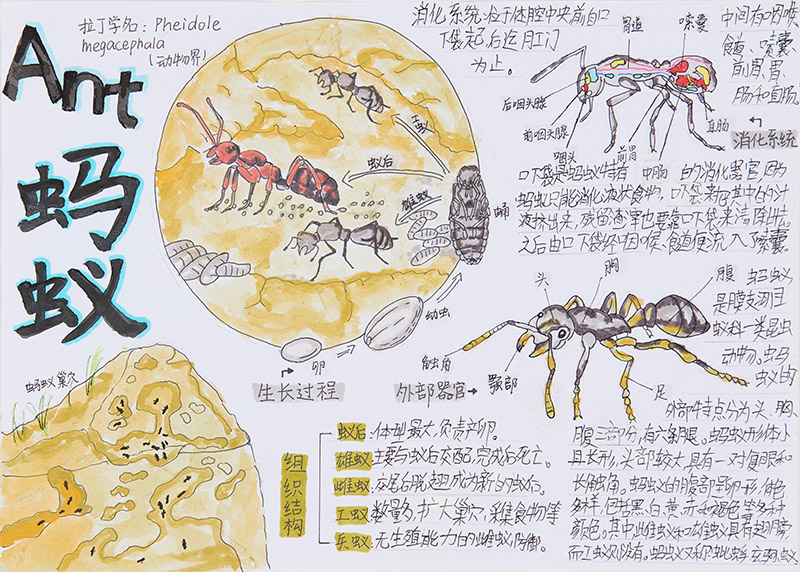 Ant
蚂
蚁
拉丁学名：Pheidole
megacephala
（动物界）
消化系统：位于体腔中央前自口
下袋起后迄肛门
为止。
中间有咽喉、
食道、嗉囊、
前胃、胃、
肠和直肠。
消化系统
胃道
嗉囊
后咽头腺
前咽头腺
咽头
前胃
中肠
直肠
口下袋是蚂蚁特有的消化器官，因为
蚂蚁只能消化液状食物，口下袋
液挤出来，残留渣滓也要靠口下袋来清除
之后由口下袋环咽喉、食道便流入了嗉囊。
工蚁
蚁后
雄蚁
蛹
幼虫
卵
生长过程
外部器官
头
胸
腹
触角
颚部
足
蚂蚁
是膜翅目
蚁科一类昆虫
动物。蚂
蚁的
外部特点分为头、胸、
腹三部分，有六条腿。蚂蚁形体小
且长形，头部较大，具有一对复眼和
长触角。蚂蚁的腹部呈卵形，体色
多样，包括黑、白、黄、赤和褐色等多种
颜色。其中雌蚁和雄蚁具有翅膀，
而工蚁则没有。蚂蚁又称蚍蜉、玄驹、蚁
蚂蚁巢穴
组织结构
蚁后：体型最大，负责产卵。
雄蚁：主要与蚁后交配，完成后死亡。
雌蚁：交尾后脱翅成为新的蚁后。
工蚁：数量多，扩大巢穴，采集食物等
兵蚁：无生殖能力的雌蚁，防御。